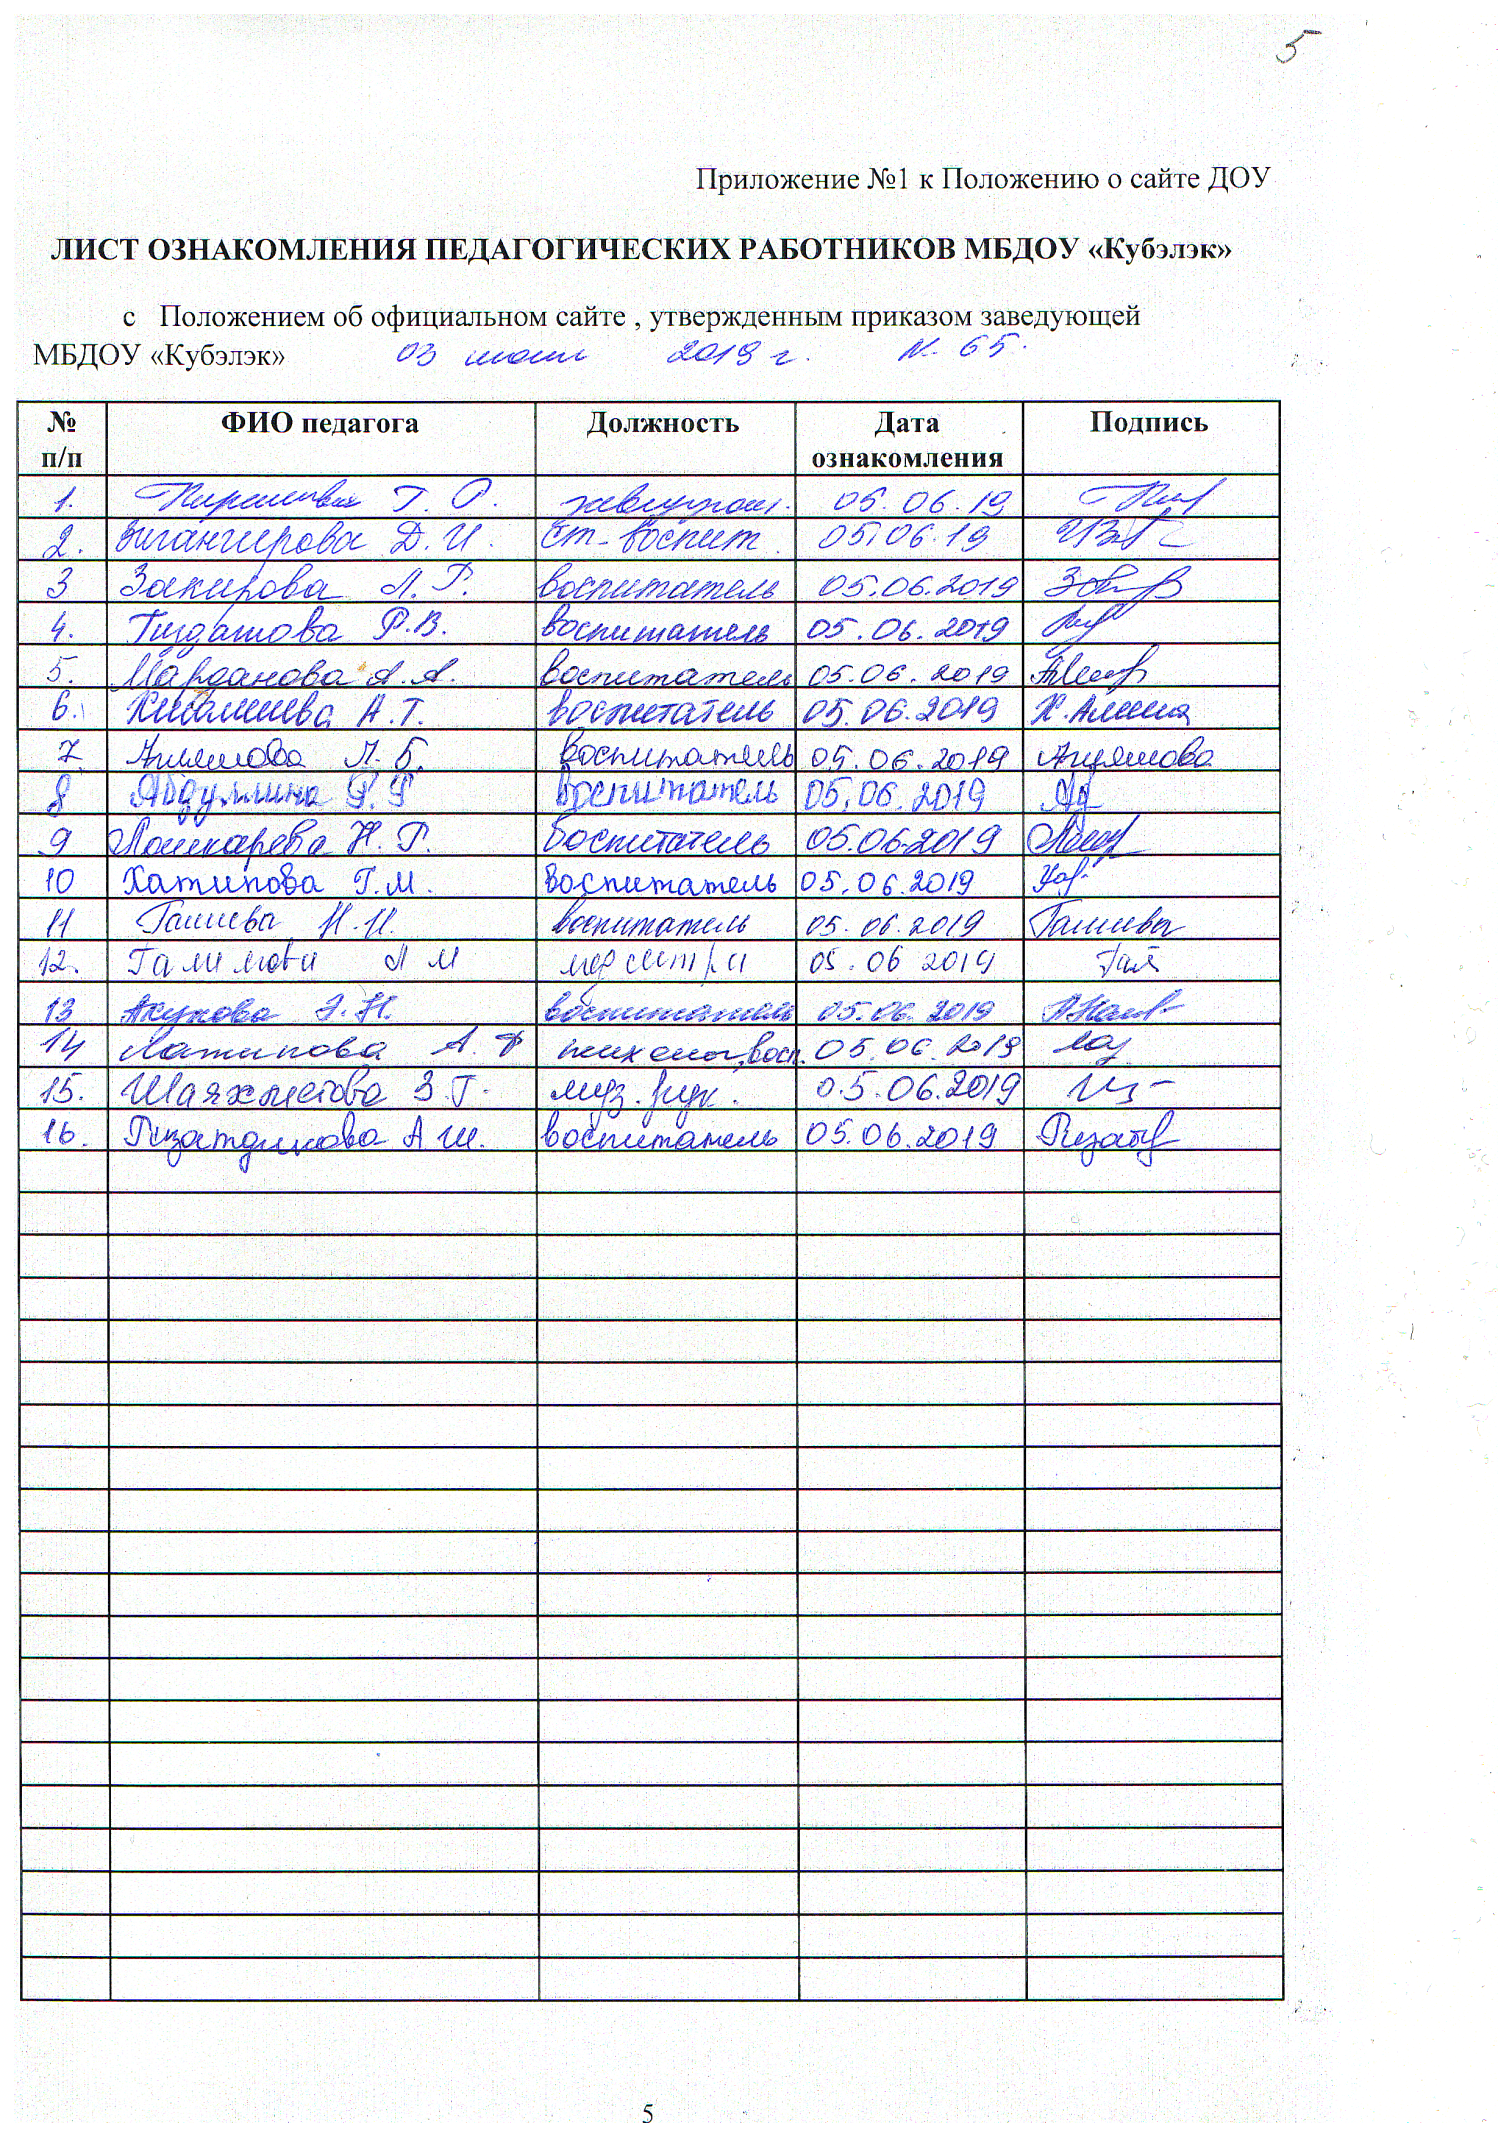 5
Приложение №1 к Положению о сайте ДОУ
ЛИСТ ОЗНАКОМЛЕНИЯ ПЕДАГОГИЧЕСКИХ РАБОТНИКОВ МБДОУ «Кубэлэк»
с Положением об официальном сайте , утвержденным приказом заведующей
МБДОУ «Кубэлэк» 03 2019 г. N. 65.
№ п/п ФИО педагога Должность Дата ознакомления Подпись
1. Г. Р. 05.06.19
2. Зигангирова Д.И. ст-воспит. 05.06.19
3 Закирова Л.Р. воспитатель 05.06.2019
4. Р.В. воспитатель 05.06.2019
5. Марданова А.А. воспитатель 05.06.2019
6. А.Т. воспитатель 05.06.2019
7. Л.Б. воспитатель 05.06.2019
8 Абдуллина Р.Р воспитатель 05.06.2019
9 Лошкарева Н.Р. воспитатель 05.06.2019
10 Хатипова Г.М. воспитатель 05.06.2019
11 Гашева Н.И. воспитатель 05.06.2019 Гашева
12. Галимова Л М медсестра 05.06 2019 Гал
13 Акулова Э.Н. воспитатель 05.06.2019
14 Латипова А.Ф психолог, восп. 05.06.2019
15. Шаяхметова З.Г. муз.рук. 05.06.2019
16. А Ш. воспитатель 05.06.2019
5